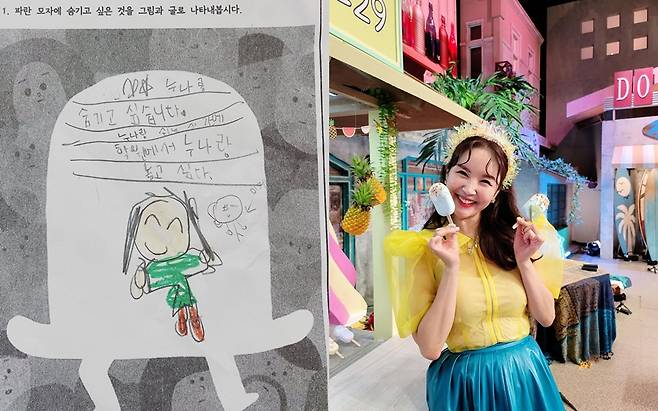 1. 파란 모자에 숨기고 싶은 것을 그림과 글로 나타내봅시다.
누나를
숨기고 싶습니다.
누나랑
학원에서 누나랑
놀고 싶다.
29
DO